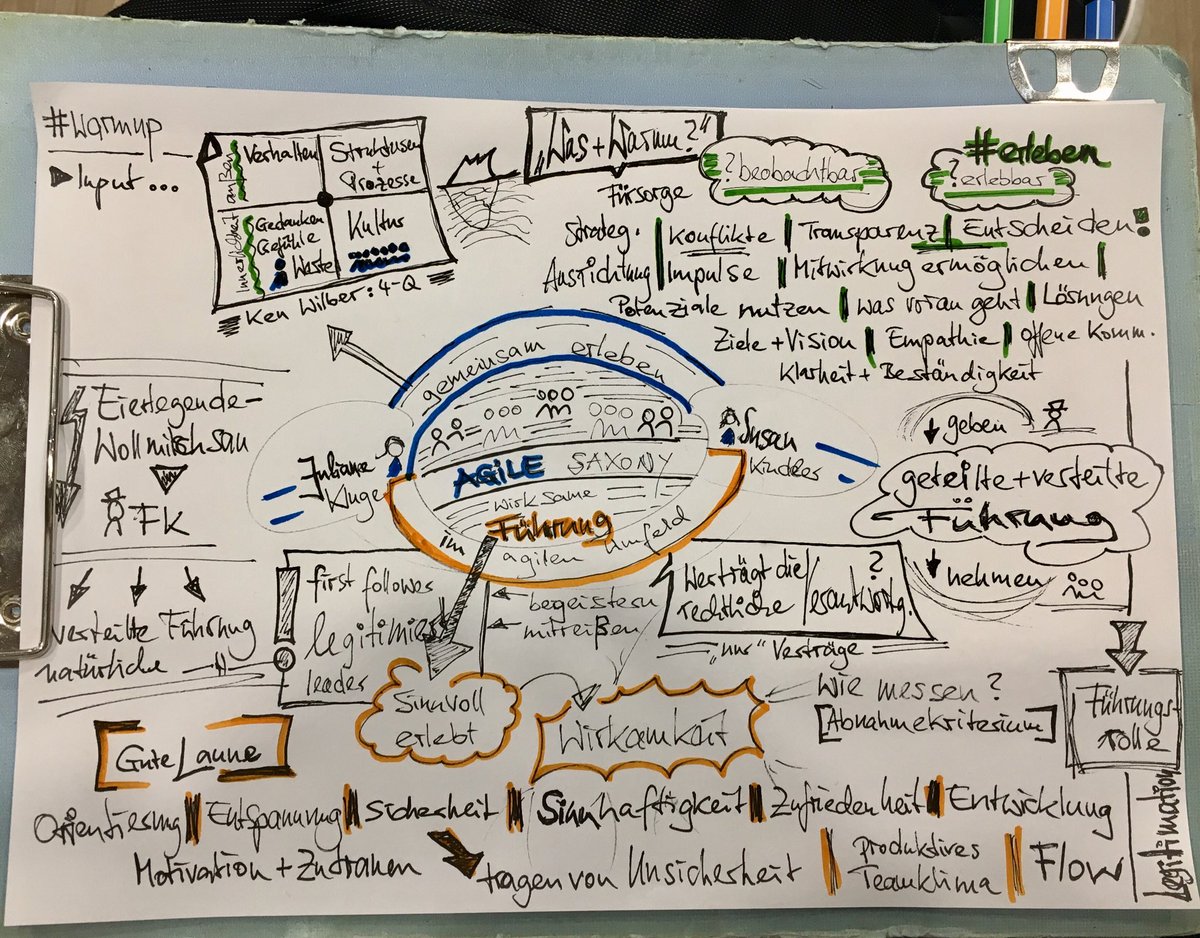 #Warmup
Input ...
außen
Verhalten
Strukturen
+
Prozesse
Innerlichkeit
Gedanken
Gefühle
Werte
Kultur
Ken Wilber: 4-Q
„Was + Warum?"
Fürsorge
? beobachtbar
#erleben
? erlebbar
Strateg. | Konflikte | Transparenz | Entscheiden!
Ausrichtung | Impulse | Mitwirkung ermöglichen |
Potenziale nutzen | was voran geht | Lösungen
Ziele + Vision | Empathie | offene Komm.
Klarheit + Beständigkeit
Eierlegende-
Wollmilchsau
FK
verteilte Führung
natürliche
gemeinsam erleben
Juliane
Kluge
Susan
Kindler
AGILE SAXONY
Wirksame
Führung
im agilen Umfeld
geben
geteilte + verteilte
Führung
nehmen
first follower
legitimiert
leader
begeistern
mitreißen
Wer trägt die ?
rechtliche /esantwortg.
„nur" Verträge
Sinnvoll
erlebt
Wirkamkeit
Wie messen?
[Abnahmekriterium]
Führungs-
rolle
Legitimation
Gute Laune
Orientierung | Entspannung | Sicherheit | Sinnhaftigkeit | Zufriedenheit | Entwicklung
Motivation + Zutrauen
tragen von Unsicherheit | Produktives
Teamklima | Flow